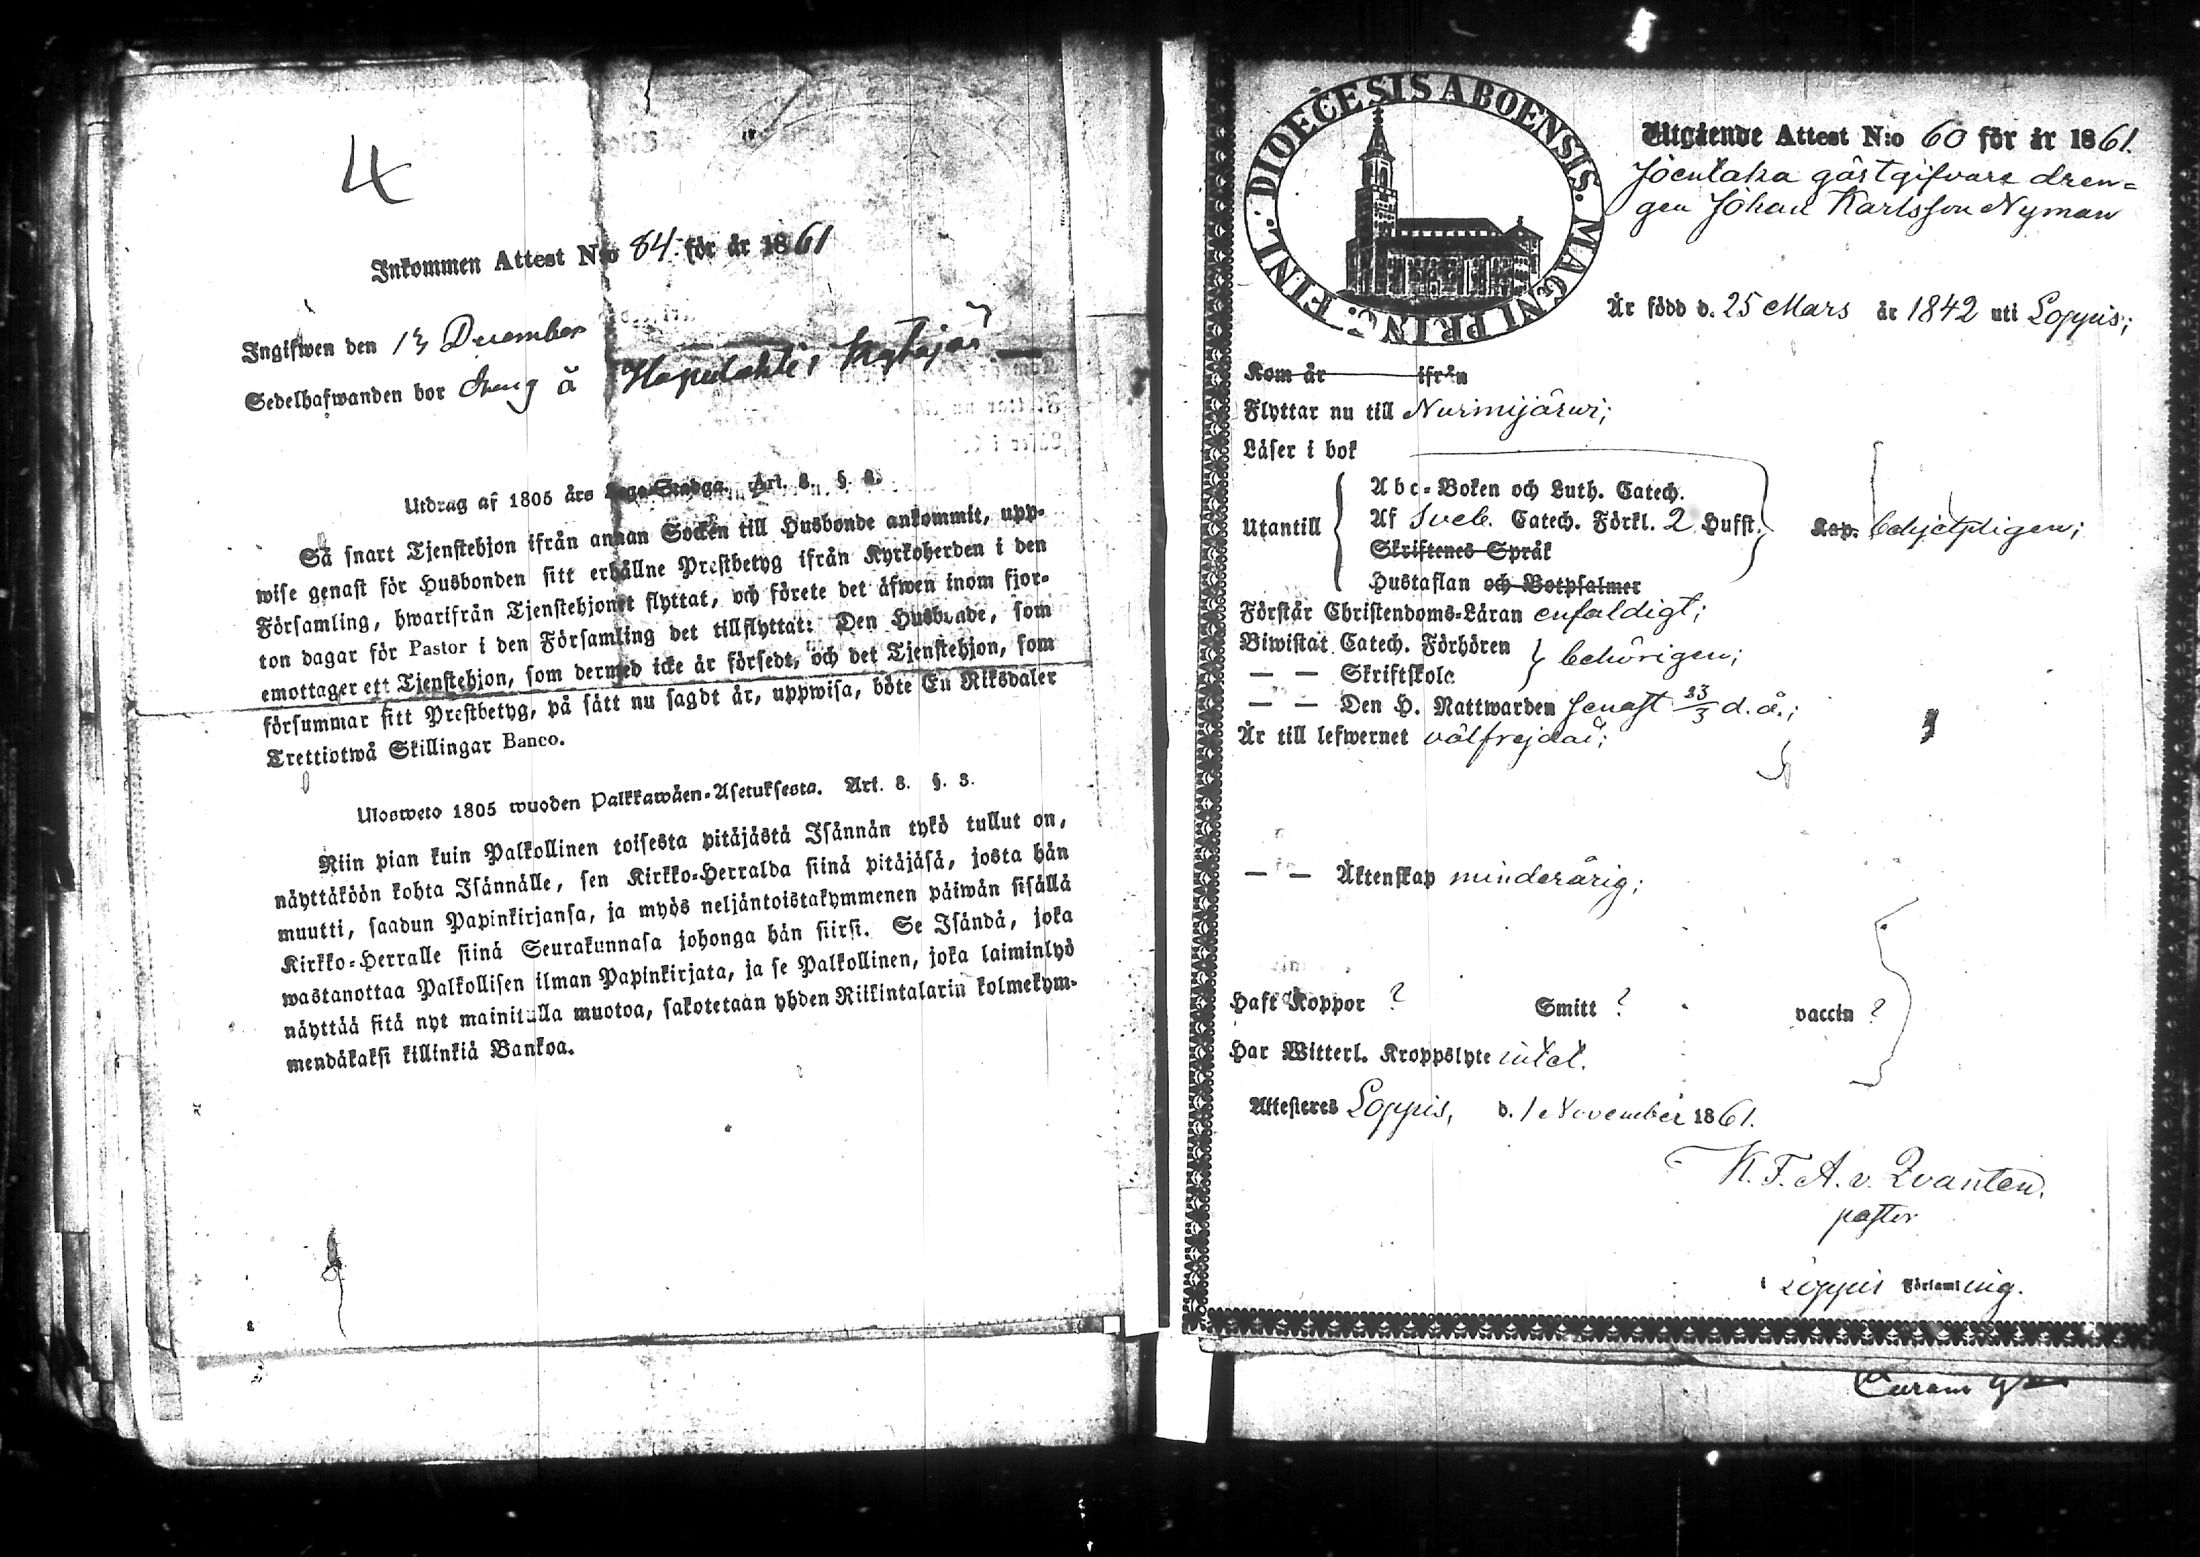 4
Inkommen Attest N:o 84 för år 1861
Ingifwen den 13 December
Sedelhafwanden bor dreng å
Utdrag af 1805 års Lego-Stadga. Art. 8. §. 3.
Så snart Tjenstehjon ifrån annan Socken till Husbonde ankommit, upp-
wise genast för Husbonden sitt erhållne Prestbetyg ifrån Kyrkoherden i den
Församling, hwarifrån Tjenstehjonet flyttat, och förete det äfwen inom fjor-
ton dagar för Pastor i den Församling det tillflyttat: Den Husbonde, som
emottager ett Tjenstehjon, som dermed icke är försedt, och det Tjenstehjon, som
försummar sitt Prestbetyg, på sätt nu sagdt är, uppwisa, böte En Riksdaler
Trettiotwå Skillingar Banco.
Ulosweto 1805 wuoden Palkkawäen-Asetuksesta. Art. 8. §. 3.
Niin pian kuin Palkollinen toisesta pitäjästä Isännän tykö tullut on,
näyttäköön kohta Isännälle, sen Kirkko-Herralda siinä pitäjäsä, josta hän
muutti, saadun Papinkirjansa, ja myös neljäntoistakymmenen päiwän sisällä
Kirkko-Herralle siinä Seurakunnasa johonga hän siirsi. Se Isändä, joka
wastanottaa Palkollisen ilman Papinkirjata, ja se Palkollinen, joka laiminlyö
näyttää sitä nyt mainitulla muotoa, sakotetaan yhden Riikintalarin kolmekym-
mendäkaksi killinkiä Bankoa.
DIOECESIS ABOENSIS. MAGNI PRINC. FINL.
Utgående Attest N:o 60 för år 1861.
gästgifvare dren=
gen Johan Karlsson Nyman
Är född d. 25 Mars år 1842 uti Loppis;
Kom år ifrån
Flyttar nu till Nurmijärwi;
Läser i bok
Utantill
Abc-Boken och Luth. Catech.
Af Sveb. Catech. Förkl. 2 Hufst.
Skriftenes Språk
Hustaflan och Botpsalmer
Kap. behjelpligen;
Förstår Christendoms-Läran enfaldigt;
Biwistat Catech. Förhören
— — Skriftskola
behörigen;
— — Den H. Nattwarden senast 23/3 d. å.;
Är till lefwernet välfrejdad;
— — Äktenskap minderårig;
Haft Koppor ? Smitt ? vaccin ?
Har Witterl. Kroppslyte intet.
Attesteres Loppis, d. 1 November 1861.
K. F. A. v. Qvanten.
pastor
i Loppis Församling.